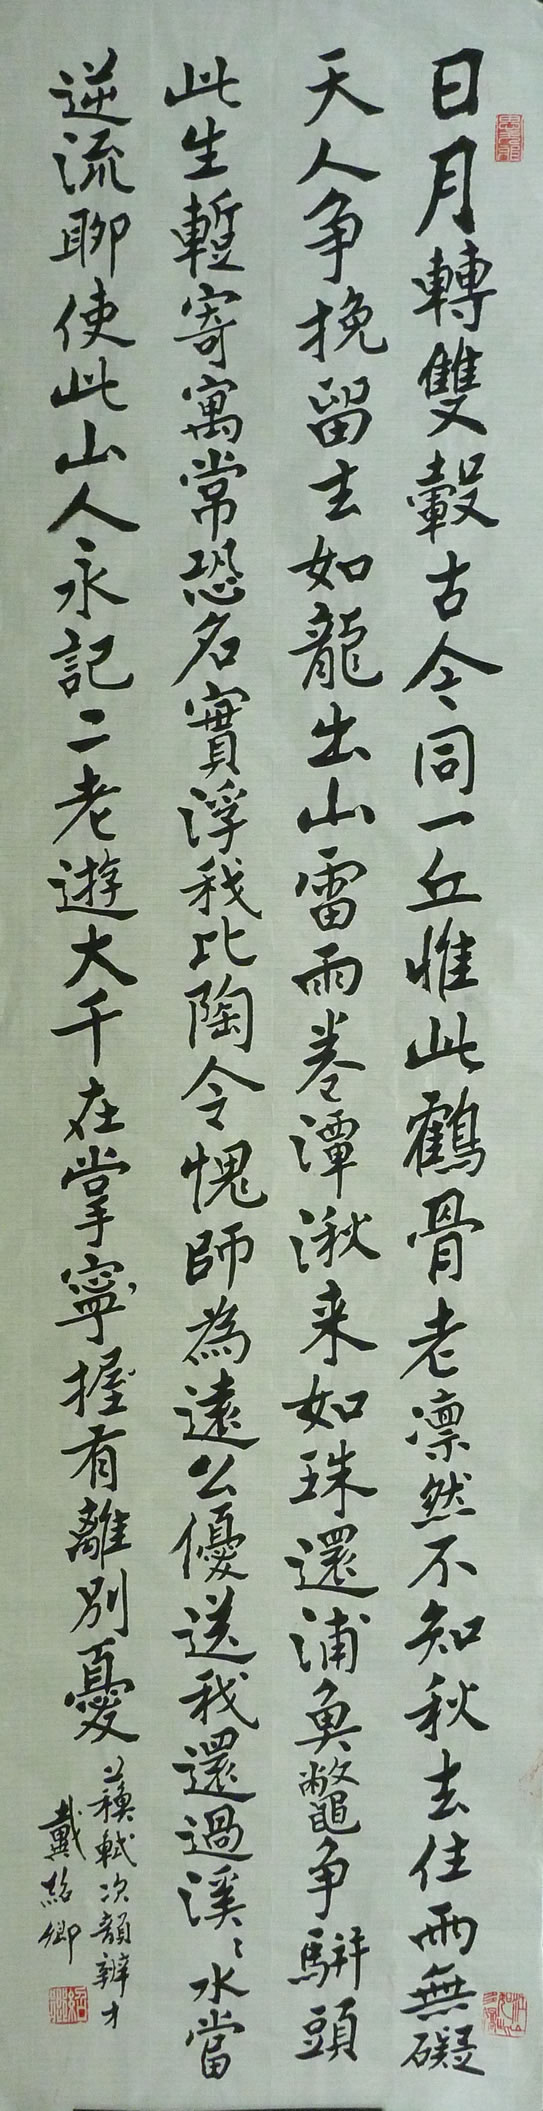 日月轉雙轂古今同一丘惟此鶴骨老凛然不知秋去住兩無礙
天人争挽留去如龍出山雷雨卷潭湫来如珠還浦魚鼈争駢頭
此生暫寄寓常恐名實浮我比陶令愧師為遠公優送我還過溪〻水當
逆流聊使此山人永記二老遊大千在掌寧握有離別憂
蘇軾次韻辨才
戴紹卿